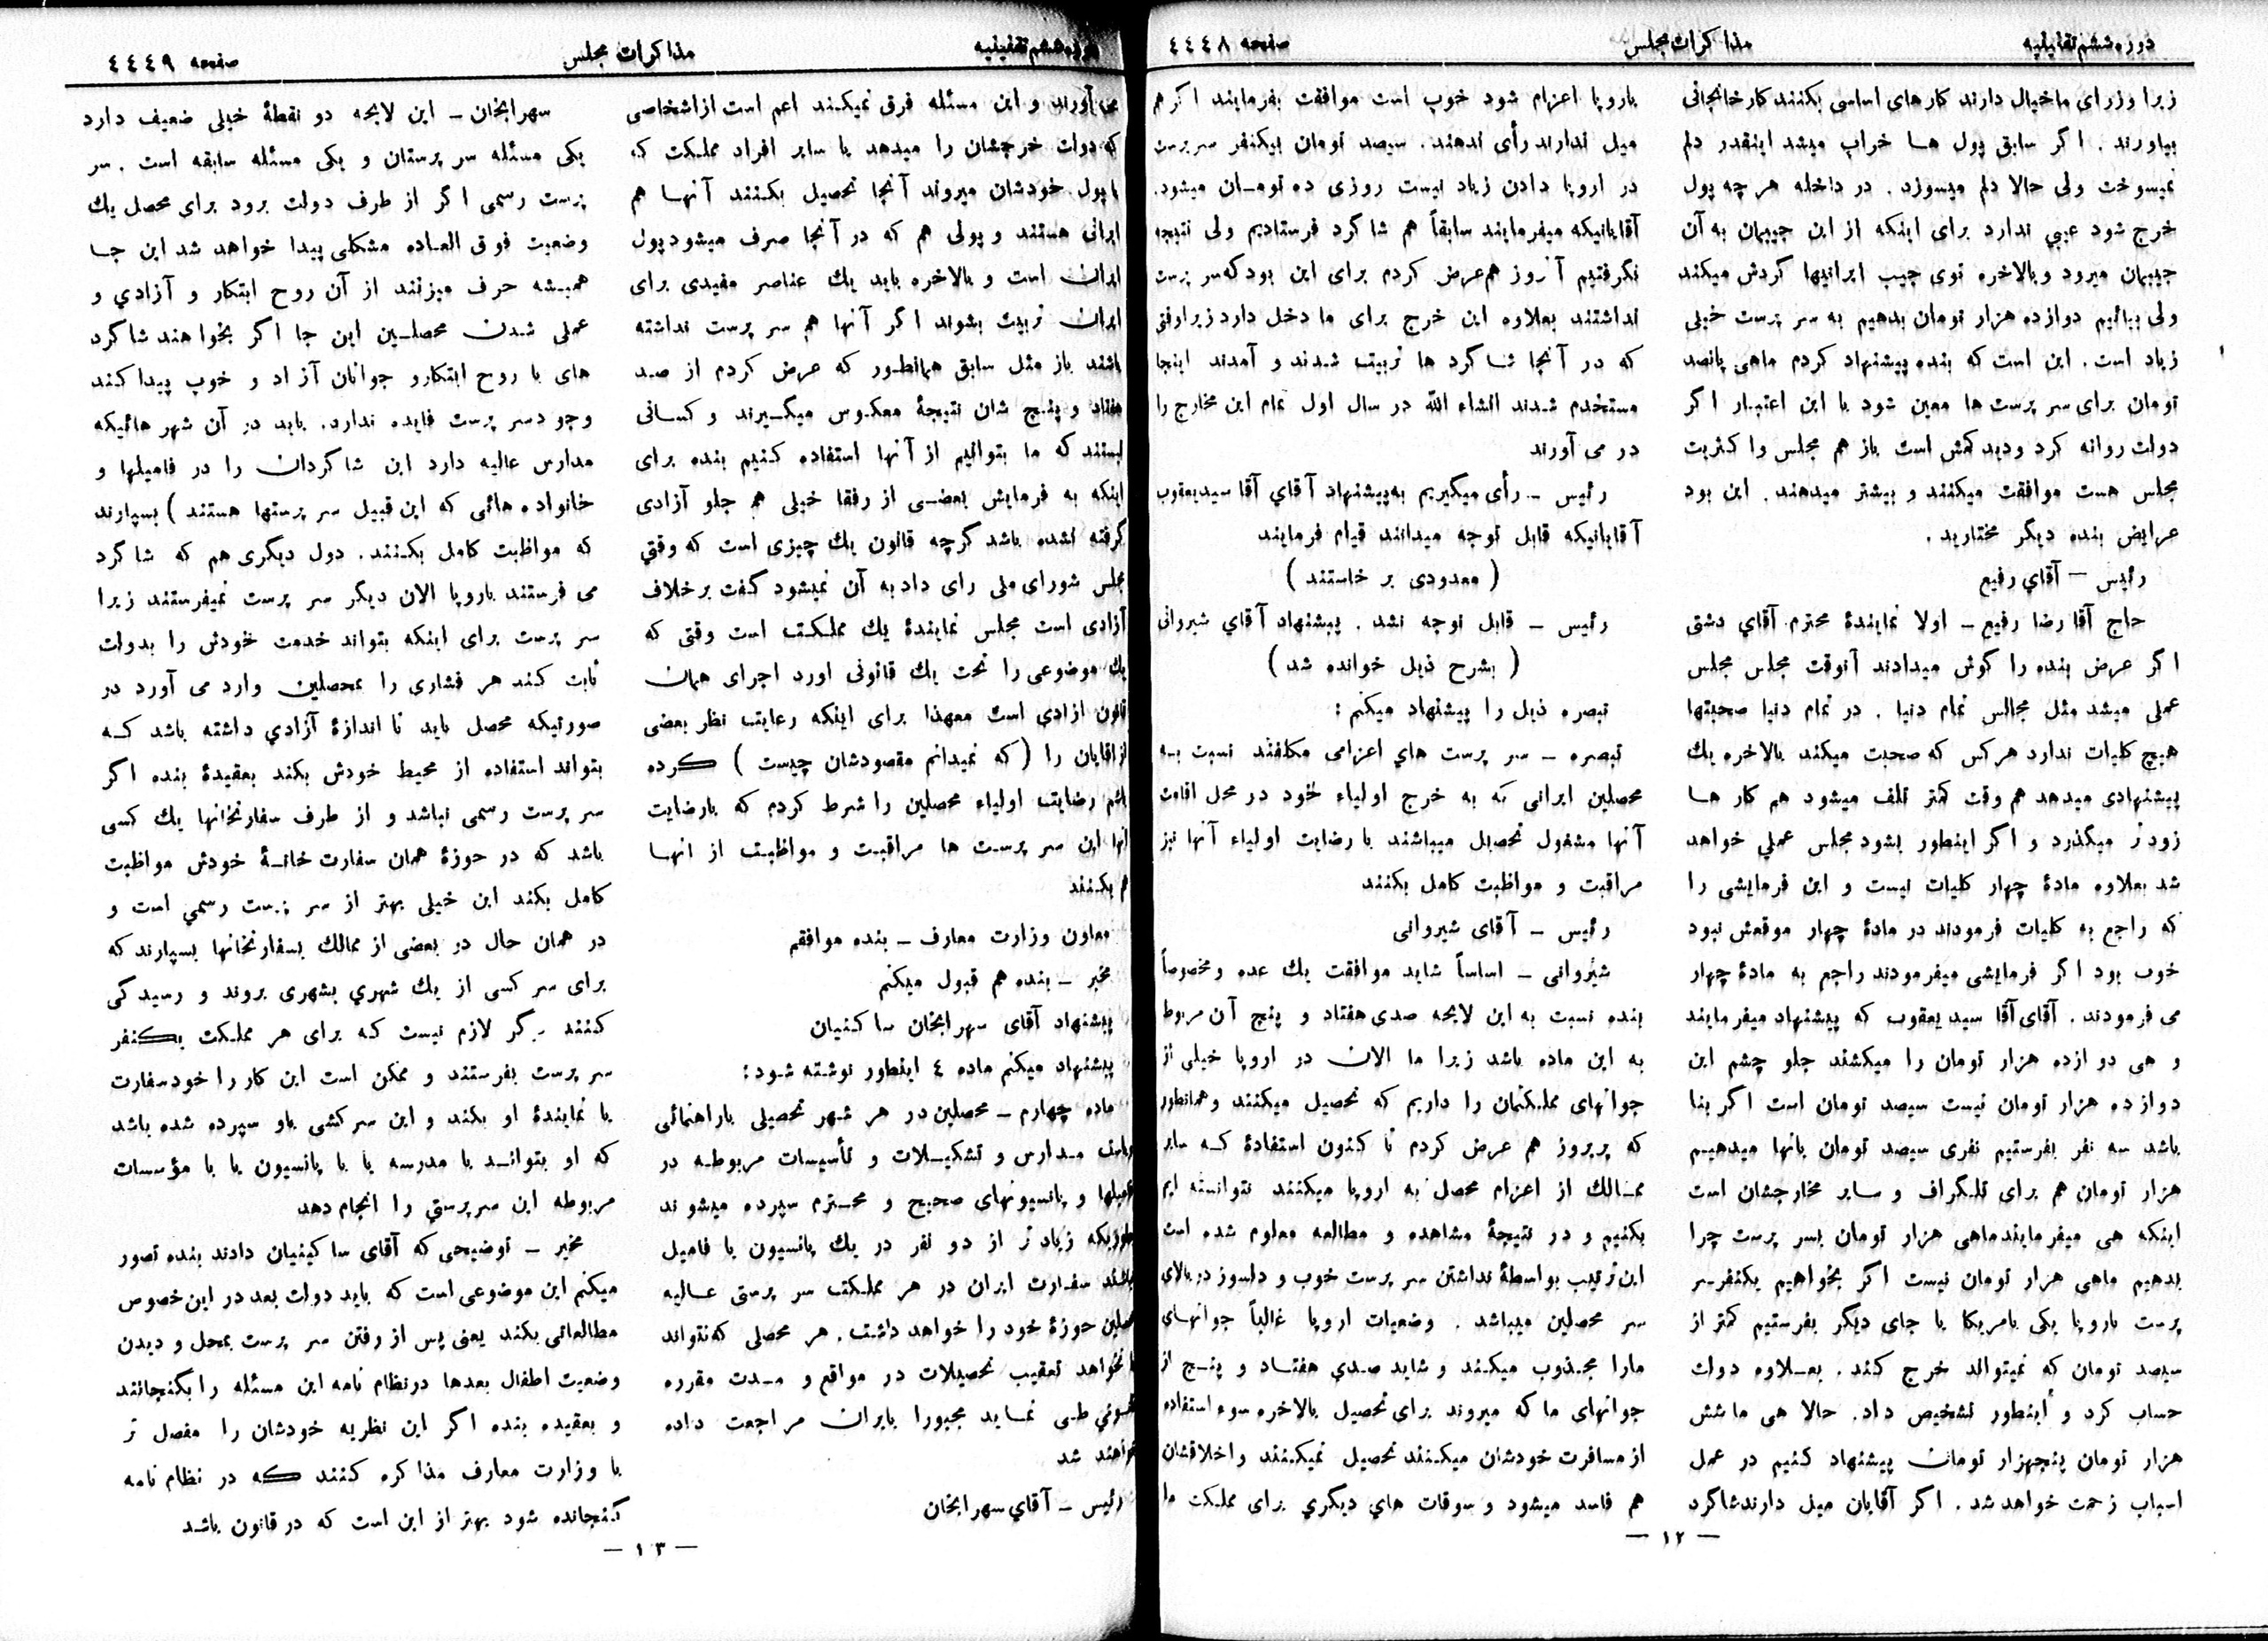 دوره ششم تقنینیه
مذاکرات مجلس
صفحه ٤٤٤٨
زیرا وزرای ما خیال دارند کارهای اساسی بکنند کارخانجانی
بیاورند . اگر سابق پول هـا خراب میشد اینقدر دلم
نمیسوخت ولی حالا دلم میسوزد . در داخله هر چه پول
خرج شود عیبی ندارد برای اینکه از این جیبمان به آن
جیبمان میرود و بالاخره توی جیب ایرانیها گردش میکند
ولی بیائیم دوازده هزار تومان بدهیم به سر پرست خیلی
زیاد است . این است که بنده پیشنهاد کردم ماهی پانصد
تومان برای سر پرست ها معین شود با این اعتبـار اگر
دولت روانه کرد و دید کمش است باز هم مجلس و اکثریت
مجلس هست موافقت میکنند و بیشتر میدهند . این بود
عرایض بنده دیگر مختارید .
رئیس – آقاي رفیع
حاج آقا رضا رفیع – اولا نمایندهٔ محترم آقاي دشتی
اگر عرض بنده را گوش میدادند آنوقت مجلس مجلس
عملی میشد مثل مجالس تمام دنیا . در تمام دنیا صحبتها
هیچ کلیات ندارد هر کس که صحبت میکند بالاخره یك
پیشنهادی میدهد هم وقت کمتر تلف میشود هم کار هـا
زودتر میگذرد و اگر اینطور بشود مجلس عملی خواهد
شد بعلاوه مادهٔ چهار کلیات نیست و این فرمایشی را
که راجع به کلیات فرمودند در مادهٔ چهار موقعش نبود
خوب بود اگر فرمایشی میفرمودند راجع به مادهٔ چهار
می فرمودند . آقای آقا سید یعقوب که پیشنهاد میفرمایند
و هی دوازده هزار تومان را میکشند جلو چشم این
دوازده هزار تومان نیست سیصد تومان است اگر بنا
باشد سه نفر بفرستیم نفری سیصد تومان بآنها میدهیـم
هزار تومان هم برای تلگراف و سایر مخارجشان است
اینکه هی میفرمایند ماهی هزار تومان بسر پرست چرا
بدهیم ماهی هزار تومان نیست اگر بخواهیم یکنفر سر
پرست باروپا یکی بامریکا یا جای دیگر بفرستیم کمتر از
سیصد تومان که نمیتواند خرج کند . بعـلاوه دولت
حساب کرد و اینطور تشخیص داد. حالا هی ما شش
هزار تومان پنجهزار تومان پیشنهاد کنیم در عمل
اسباب زحمت خواهد شد . اگر آقایان میل دارند شاگرد
باروپا اعزام شود خوب است موافقت بفرمایند اگر هم
میل ندارند رأی ندهند. سیصد تومان بیکنفر سرپرست
در اروپا دادن زیاد نیست روزی ده تومـان میشود.
آقایانیکه میفرمایند سابقاً هم شاگرد فرستادیم ولی نتیجه
نگرفتیم آنروز هم عرض کردم برای این بود که سر پرست
نداشتند بعلاوه این خرج برای ما دخل دارد زیرا وقتی
که در آنجا شـاگرد ها تربیت شدند و آمدند اینجا
مستخدم شدند انشاء الله در سال اول تمام این مخارج را
در می آورند
رئیس – رأی میگیریم به پیشنهاد آقاي آقا سید یعقوب
آقایانیکه قابل توجه میدانند قیام فرمایند
( معدودی بر خاستند )
رئیس – قابل توجه نشد . پیشنهاد آقاي شیروانی
( بشرح ذیل خوانده شد )
تبصره ذیل را پیشنهاد میکنم :
تبصره – سر پرست هاي اعزامی مکلفند نسبت بـه
محصلین ایرانی که به خرج اولیاء خود در محل اقامت
آنها مشغول تحصیل میباشند با رضایت اولیاء آنها نیز
مراقبت و مواظبت کامل بکنند
رئیس – آقای شیروانی
شیروانی – اساساً شاید موافقت یك عده و مخصوصاً
بنده نسبت به این لایحه صدی هفتاد و پنج آن مربوط
به این ماده باشد زیرا ما الان در اروپا خیلی از
جوانهای مملکتمان را داریم که تحصیل میکنند و همانطور
که پریروز هم عرض کردم تا کنون استفادهٔ کـه سایر
ممـالك از اعزام محصل به اروپا میکنند نتوانسته ایم
بکنیم و در نتیجهٔ مشاهده و مطالعه معلوم شده است
این ترتیب بواسطهٔ نداشتن سر پرست خوب و دلسوز در بالای
سر محصلین میباشد . وضعیات اروپا غالباً جوانهـای
مارا مجـذوب میکـند و شاید صـدي هفتـاد و پنـج از
جوانهای ما که میروند برای تحصیل بالاخره سوء استفاده
از مسافرت خودشان میکـنند تحصیل نمیکـنند و اخلاقشان
هم فاسد میشود و سوقات هاي دیگري برای مملکت ما
– ۱۲ –
دوره ششم تقنینیه
مذاکرات مجلس
صفحه ٤٤٤٩
می آورند و این مسئله فرق نمیکـند اعم است از اشخاصی
که دولت خرجشان را میدهد یا سایر افراد مملـکت که
با پول خودشان میروند آنجا تحصیل بکـنند آنهـا هم
ایرانی هستند و پولی هم که در آنجا صرف میشود پول
ایران است و بالاخره باید یك عناصر مفیدی برای
ایران تربیت بشوند اگر آنها هم سر پرست نداشته
باشند باز مثل سابق همانطـور که عرض کردم از صـد
هفتاد و پنـج شان نتیجهٔ معکـوس میگـیرند و کسـانی
نیستند که ما بتوانیم از آنها استفاده کـنیم بنده برای
اینکه به فرمایش بعضـی از رفقا خیلی هم جلو آزادی
گرفته نشده باشد گرچه قانون یك چیزی است که وقتي
مجلس شورای ملی رای داد به آن نمیشود گفت بر خلاف
آزادی است مجلس نمایندهٔ یك مملـکت است وقتی که
یك موضوعی را تحت یك قانونی اورد اجرای همان
قانون ازادی است معهذا برای اینکه رعایت نظر بعضی
از اقایان را ( که نمیدانم مقصودشان چیست ) کرده
باشم رضایت اولیاء محصلین را شرط کردم که بارضایت
آنها این سر پرسـت ها مراقبـت و مواظبـت از انهـا
هم بکـنند
معاون وزارت معارف – بنده موافقم
مخبر – بنده هم قبول میکنم
پیشنهاد آقای سهرابخان ساکنیان
پیشنهاد میکنم ماده ٤ اینطور نوشته شود :
ماده چهارم – محصلین در هر شهر تحصیلی با راهنمائی
ریاست مـدارس و تشکـیـلات و تأسیسات مربوطـه در
فامیلها و پانسیونهای صحیح و محـترم سپرده میشوند
بطوریکه زیادتر از دو نفر در یك پانسیون یا فامیل
نباشند سفـارت ایران در هر مملـکت سر پرستی عـالیه
محصلین حوزهٔ خود را خواهد داشت . هر محصلی که نتواند
یا نخواهد تعقیب تحصیلات در مواقع و مـدت مقرره
طـی نمـاید مجبورا بایران مراجعت داده
خواهند شد
رئیس – آقاي سهرابخان
سهرابخان – این لایحه دو نقطهٔ خیلی ضعیف دارد
یکی مسئله سر پرستان و یکی مسئله سابقه است . سر
پرست رسمی اگر از طرف دولت برود برای محصل یك
وضعیت فوق العـاده مشکلی پیدا خواهد شد این جـا
همیـشه حرف میزنند از آن روح ابتکار و آزادي و
عملی شـدن محصلـین این جا اگر بخواهند شاگرد
های با روح ابتکار و جوانان آزاد و خوب پیدا کـند
وجود سر پرست فایده ندارد. باید در آن شهر هائیکه
مدارس عالیه دارد این شاگردان را در فامیلها و
خانواده هائی که این قبیل سر پرستها هستند ) بسپارند
که مواظبت کامل بکـنند . دول دیگری هم که شاگرد
می فرستند باروپا الان دیگر سر پرست نمیفرستند زیرا
سر پرست برای اینکه بتواند خدمت خودش را بدولت
ثابت کـند هر فشاری را بمحصلین وارد می آورد در
صورتیکه محصل باید تا اندازهٔ آزادي داشته باشد کـه
بتواند استفاده از محیط خودش بکند بعقیدهٔ بنده اگر
سر پرست رسمی نباشد و از طرف سفارتخانها یك کسی
باشد که در حوزهٔ همان سفارت خانـهٔ خودش مواظبت
کامل بکند این خیلی بهتر از سر پرست رسمي است و
در همان حال در بعضی از ممالك بسفارتخانها بسپارند که
برای سر کسی از یك شهري بشهری بروند و رسیدگی
کـنند دیگر لازم نیست که برای هر مملکت یکنفر
سر پرست بفرستند و ممکن است این کار را خود سفارت
یا نمایندهٔ او بکند و این سر کشی باو سپرده شده باشد
که او بتوانـد با مدرسه یا با پانسیون یا با مؤسسات
مربوطه این سر پرستي را انجام دهد
مخبر – توضیحی که آقای ساکینیان دادند بنده تصور
میکنم این موضوعی است که باید دولت بعد در این خصوص
مطالعاتی بکند یعنی پس از رفتن سر پرست بمحل و دیدن
وضعیت اطفال بعدها در نظام نامه این مسئله را بگنجانند
و بعقیده بنده اگر این نظریه خودشان را مفصل تر
با وزارت معارف مذاکره کنند که در نظام نامه
گنجانده شود بهتر از این است که در قانون باشد
– ۱۳ –